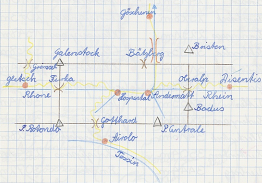 Göschenen
Galenstock
Bätzberg
Bristen
Grimsel
Gletsch
Furka
Oberalp
Disentis
Rhone
Hospental
Andermatt
Rhein
Badus
P. Rotondo
Gotthard
P. Centrale
Airolo
Tessin